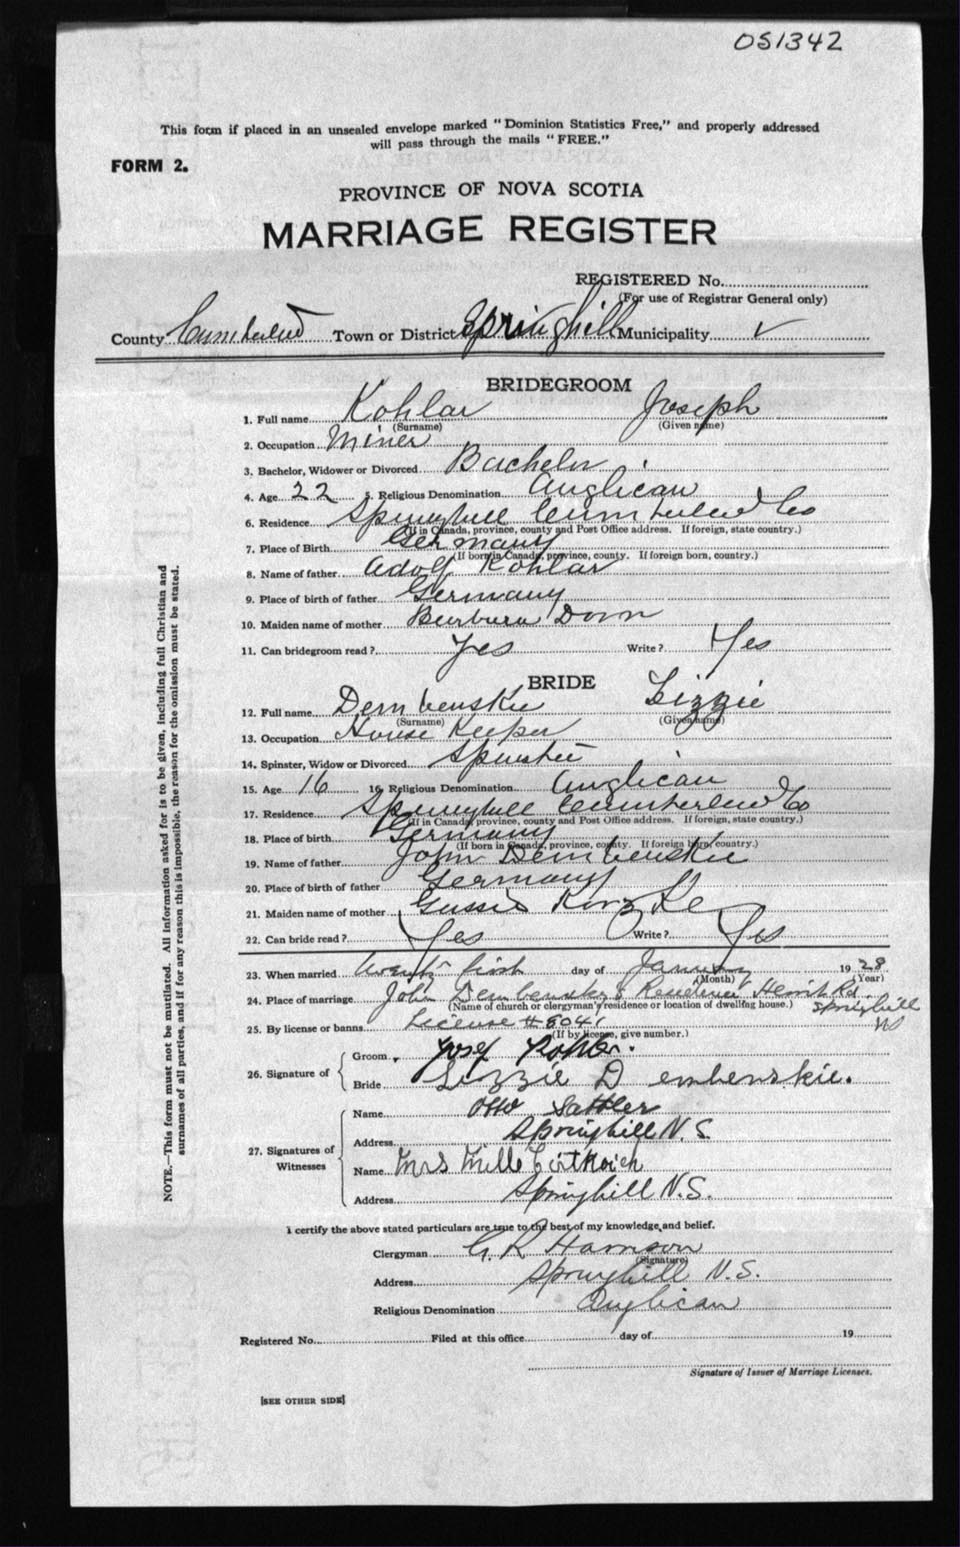 051342
This form if placed in an unsealed envelope marked "Dominion Statistics Free," and properly addressed
will pass through the mails "FREE."
FORM 2.
PROVINCE OF NOVA SCOTIA
MARRIAGE REGISTER
REGISTERED No.
(For use of Registrar General only)
County Cumberland Town or District Springhill Municipality ✓
BRIDEGROOM
1. Full name Kohlar Joseph
(Surname) (Given name)
2. Occupation Miner
3. Bachelor, Widower or Divorced Bachelor
4. Age 22 5. Religious Denomination Anglican
6. Residence Springhill Cumberland Co
(If in Canada, province, county and Post Office address. If foreign, state country.)
7. Place of Birth Germany
(If born in Canada, province, county. If foreign born, country.)
8. Name of father Adolf Kohlar
9. Place of birth of father Germany
10. Maiden name of mother Burbura Dorn
11. Can bridegroom read? Yes Write? Yes
BRIDE
12. Full name Dembenskie Lizzie
(Surname) (Given name)
13. Occupation House Keeper
14. Spinster, Widow or Divorced Spinster
15. Age 16 16. Religious Denomination Anglican
17. Residence Springhill Cumberland Co
(If in Canada, province, county and Post Office address. If foreign, state country.)
18. Place of birth Germany
(If born in Canada, province, county. If foreign born, country.)
19. Name of father John Dembenskie
20. Place of birth of father Germany
21. Maiden name of mother Gussie
22. Can bride read? Yes Write? Yes
23. When married twenty first day of January 1928
(Month) (Year)
24. Place of marriage John Dembensky's Residence Herrit Rd. Springhill
(Name of church or clergyman's residence or location of dwelling house.)
NS
25. By license or banns License # 8041
(If by license, give number.)
26. Signature of Groom Josef Kohler.
Bride Lizzie Dembenskie.
27. Signatures of Witnesses
Name Otto Sattler
Address Springhill N.S
Name Mrs Mille
Address Springhill N.S.
I certify the above stated particulars are true to the best of my knowledge and belief.
Clergyman G. R. Harrison
(Signature)
Address Springhill N.S.
Religious Denomination Anglican
Registered No. Filed at this office day of 19
Signature of Issuer of Marriage Licenses.
[SEE OTHER SIDE]
NOTE.—This form must not be mutilated. All information asked for is to be given, including full Christian and
surnames of all parties, and if for any reason this is impossible, the reason for the omission must be stated.